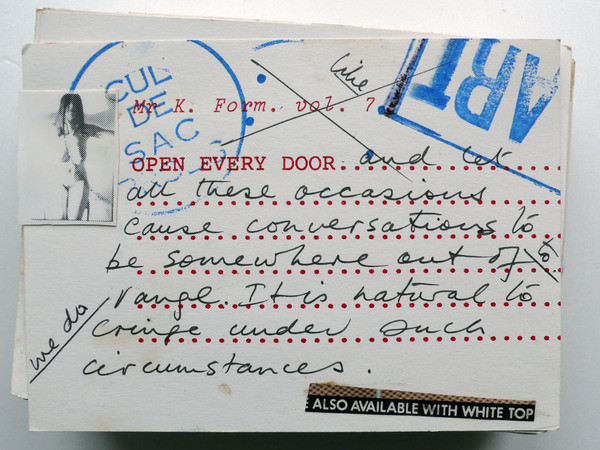 CUL
DE
SAC
like
ART
Mr K. Form. vol. 7
OPEN EVERY DOOR and let
all these occasions
cause conversations to
be somewhere out of
range. It is natural to
cringe under such
circumstances.
we do
ALSO AVAILABLE WITH WHITE TOP